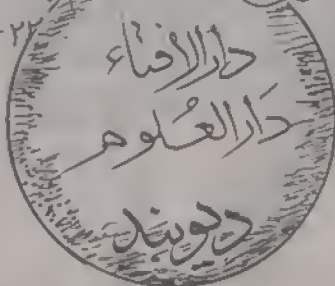 ۲۲
دارالافتاء
دَارالعُلوم
دیوبند